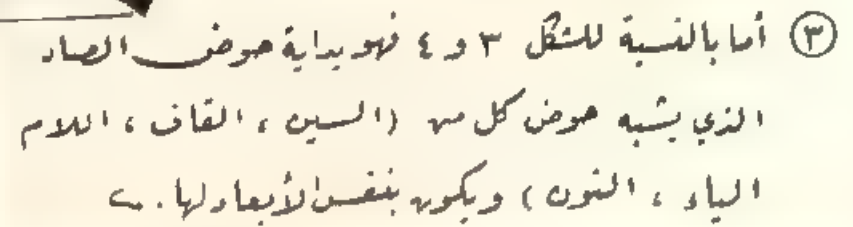 ③ أما بالنسبة للشكل ٣ و ٤ فهو بداية حوض الصاد
الذي يشبه حوض كل من (السين ، القاف ، اللام
الياء ، النون) ويكون بنفس الأبعاد لها .